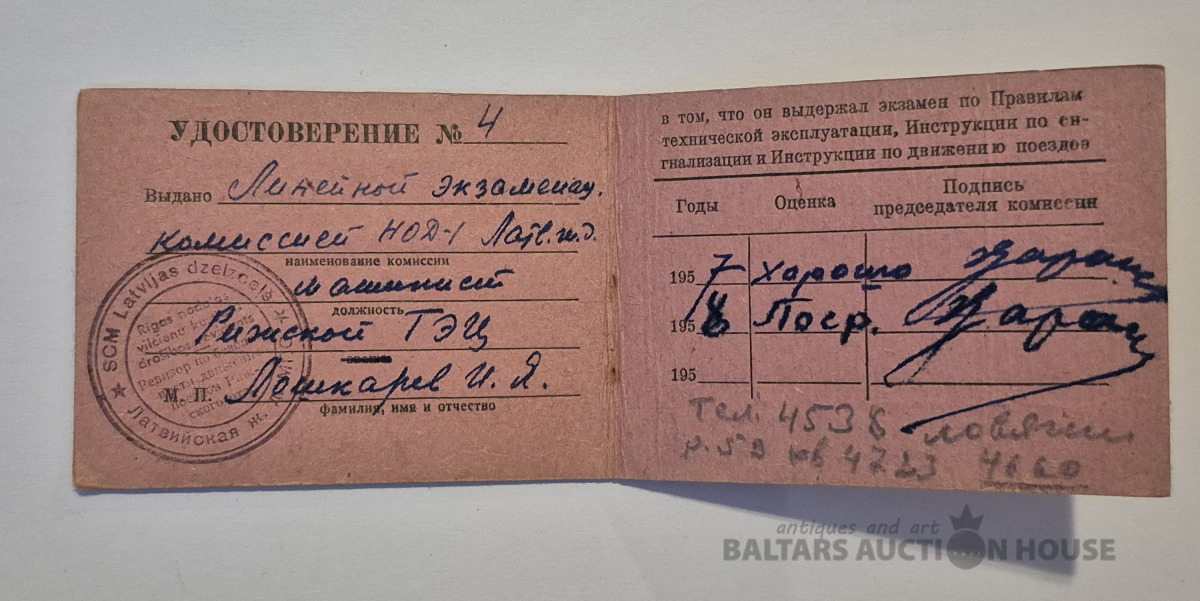 УДОСТОВЕРЕНИЕ № 4
Выдано Линейной экзаменац.
комиссией НОД-1 Латв.ж.д.
наименование комиссии
машинист
должность
Рижской ТЭЦ
М. П. Лошкарев И. Я.
фамилия, имя и отчество
SCM Latvijas dzelzceļš
Rīgas nodaļas
Латвийская ж.
в том, что он выдержал экзамен по Правилам
технической эксплуатации, Инструкции по си-
гнализации и Инструкции по движению поездов
Годы Оценка Подпись
председателя комиссии
1957 хорошо
1958 Поср.
195
Тел. 4538
кв 4723 4660
antiques and art
BALTARS AUCTION HOUSE